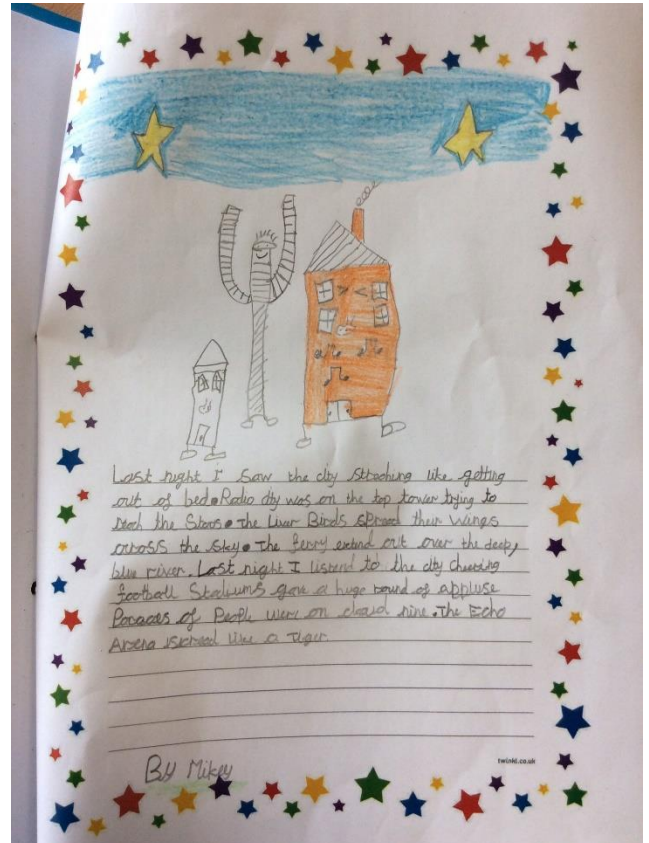 Last night I saw the city streching like getting
out of bed. Radio city was on the top tower trying to
reach the Stars. The Liver Birds spread their wings
across the sky. The ferry extend out over the deep,
blue river. Last night I listend to the city cheering
football Stadiums gave a huge round of appluse
of People were on cloud nine. The Echo
Arena like a Tiger
twinkl.co.uk
By Mikey